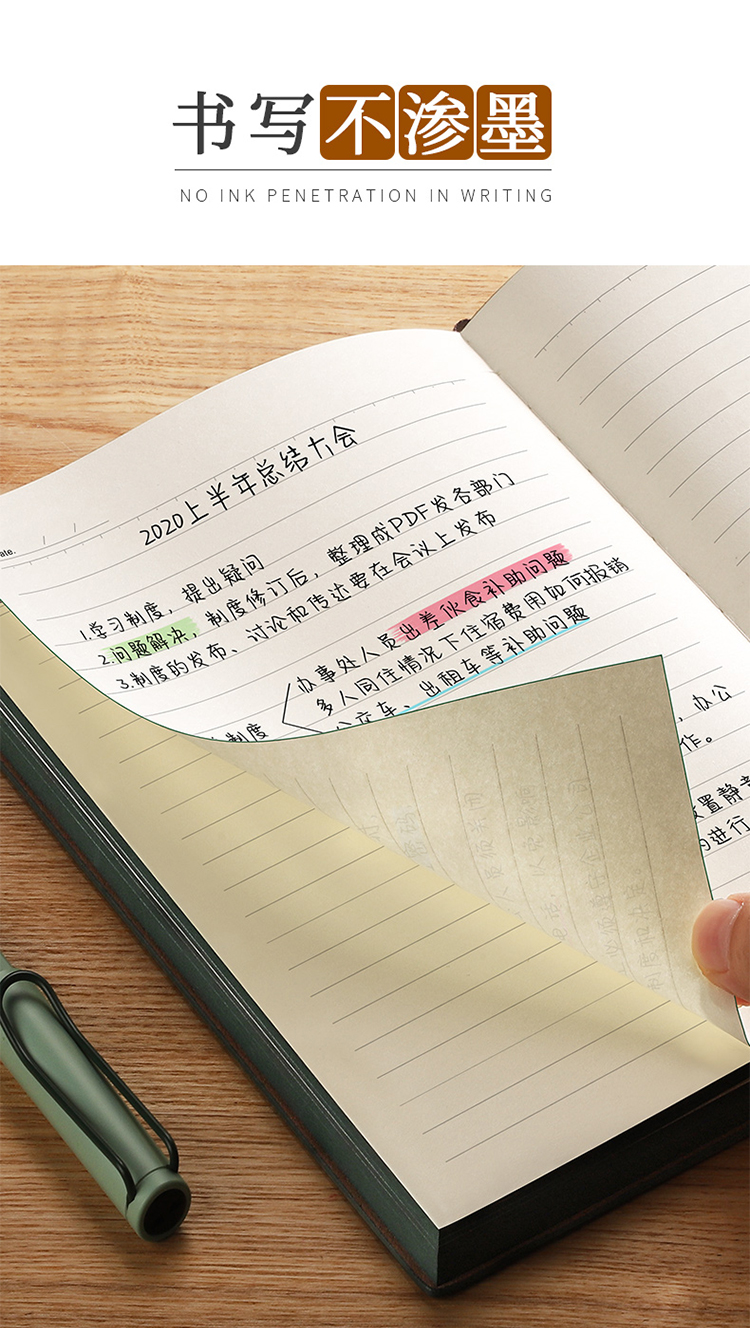 书写不渗墨
NO INK PENETRATION IN WRITING
2020上半年总结大会
ate.
1.学习制度，提出疑问
2.问题解决，制度修订后，整理成PDF发各部门
3.制度的发布、讨论和传达要在会议上发布
办事处人员出差伙食补助问题
多人同住情况下住宿费用如何报销
公交车、出租车等补助问题
制度
，办公
作。
放置静音
的进行